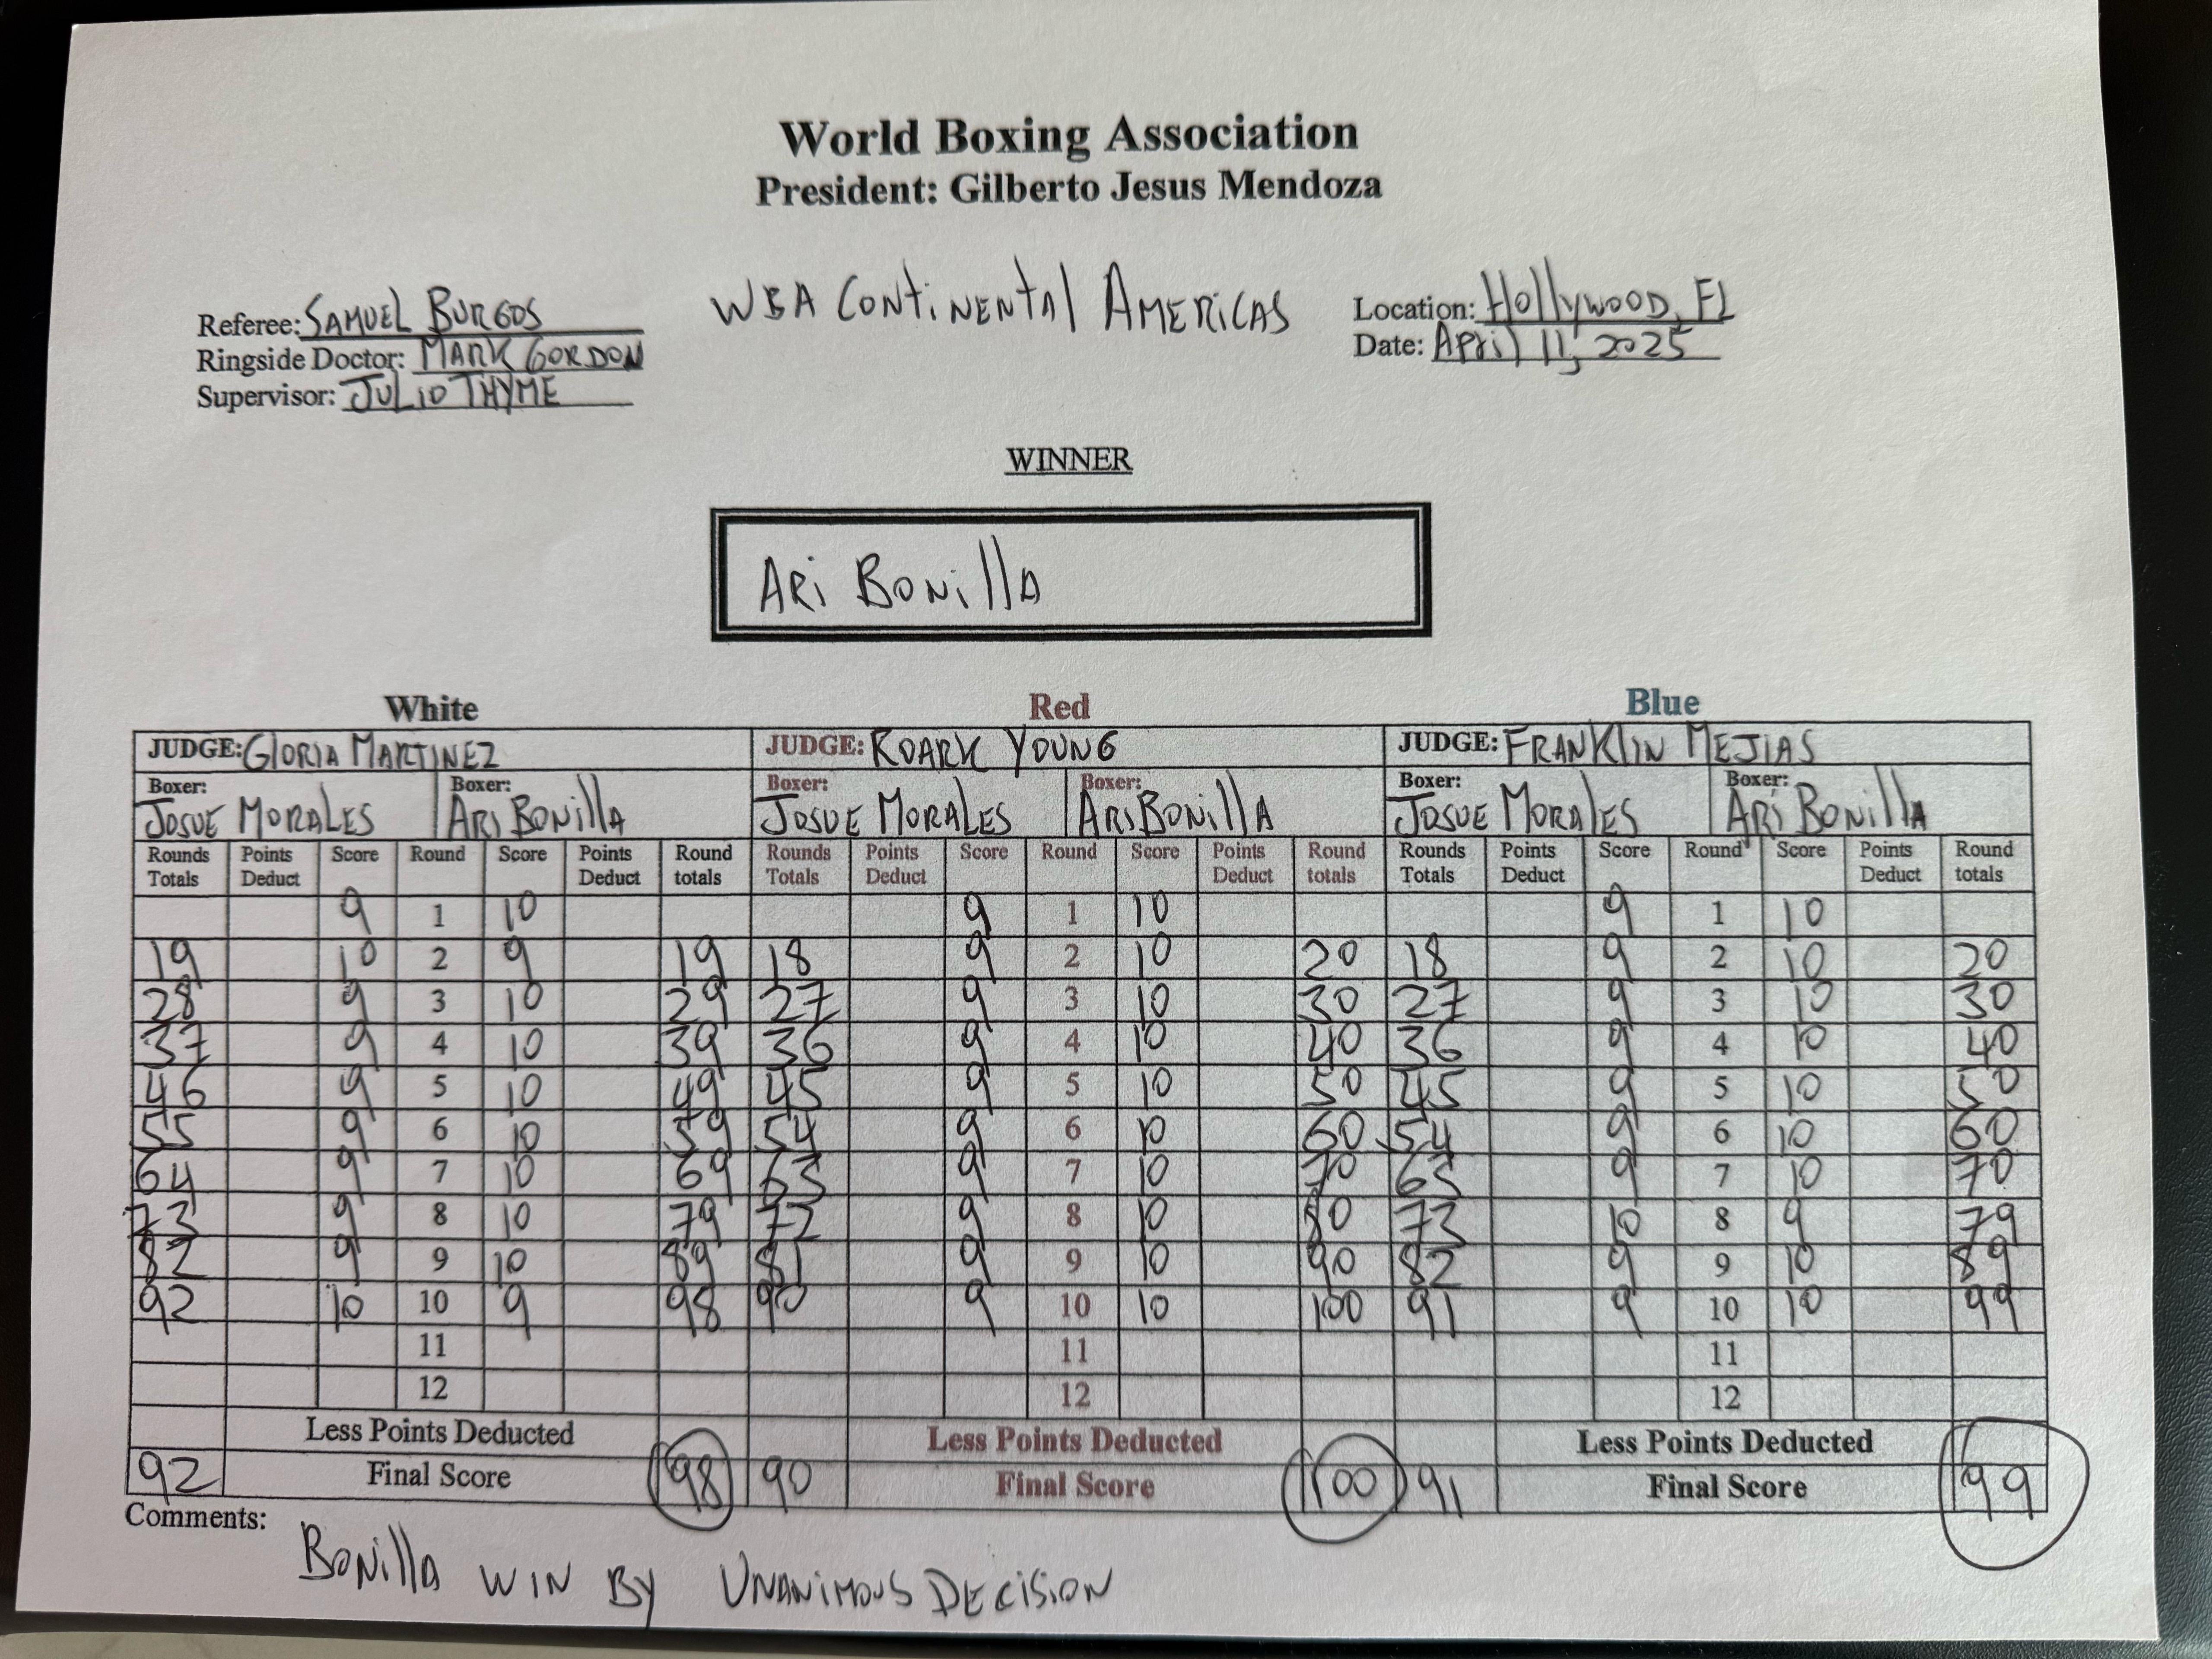 World Boxing Association
President: Gilberto Jesus Mendoza
WBA Continental Americas
Referee: Samuel Burgos
Ringside Doctor: Mark Gordon
Supervisor: Julio Thyme
Location: Hollywood, FL
Date: April 11, 2025
WINNER
Ari Bonilla
White Red Blue
JUDGE: Gloria Martinez JUDGE: Roark Young JUDGE: Franklin Mejias
Boxer: Boxer: Boxer: Boxer: Boxer: Boxer:
Josue Morales Ari Bonilla Josue Morales Ari Bonilla Josue Morales Ari Bonilla
Rounds Points Score Round Score Points Round Rounds Points Score Round Score Points Round Rounds Points Score Round Score Points Round
Totals Deduct Deduct totals Totals Deduct Deduct totals Totals Deduct Deduct totals
9 1 10 9 1 10 9 1 10
19 10 2 9 19 18 9 2 10 20 18 9 2 10 20
28 9 3 10 29 27 9 3 10 30 27 9 3 10 30
37 9 4 10 39 36 9 4 10 40 36 9 4 10 40
46 9 5 10 49 45 9 5 10 50 45 9 5 10 50
55 9 6 10 59 54 9 6 10 60 54 9 6 10 60
64 9 7 10 69 63 9 7 10 70 63 9 7 10 70
73 9 8 10 79 72 9 8 10 80 73 10 8 9 79
82 9 9 10 89 81 9 9 10 90 82 9 9 10 89
92 10 10 9 98 90 9 10 10 100 91 9 10 10 99
11 11 11
12 12 12
Less Points Deducted Less Points Deducted Less Points Deducted
92 Final Score 98 90 Final Score 100 91 Final Score 99
Comments:
Bonilla win by Unanimous Decision